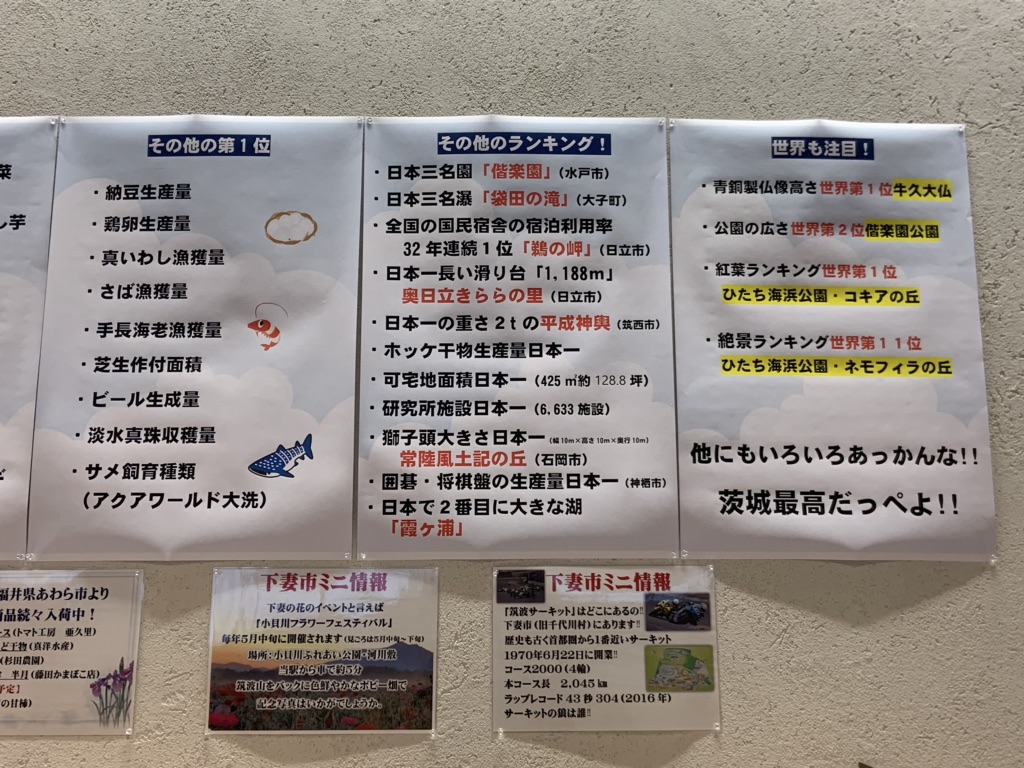 菜
し芋
ど
その他の第１位
・納豆生産量
・鶏卵生産量
・真いわし漁獲量
・さば漁獲量
・手長海老漁獲量
・芝生作付面積
・ビール生成量
・淡水真珠収穫量
・サメ飼育種類
（アクアワールド大洗）
その他のランキング！
・日本三名園「偕楽園」（水戸市）
・日本三名瀑「袋田の滝」（大子町）
・全国の国民宿舎の宿泊利用率
32年連続１位「鵜の岬」（日立市）
・日本一長い滑り台「1,188ｍ」
奥日立きららの里（日立市）
・日本一の重さ２ｔの平成神輿（筑西市）
・ホッケ干物生産量日本一
・可宅地面積日本一（425㎡約128.8坪）
・研究所施設日本一（6,633施設）
・獅子頭大きさ日本一（幅10ｍ×高さ10ｍ×奥行10ｍ）
常陸風土記の丘（石岡市）
・囲碁・将棋盤の生産量日本一（神栖市）
・日本で２番目に大きな湖
「霞ヶ浦」
世界も注目！
・青銅製仏像高さ世界第１位牛久大仏
・公園の広さ世界第２位偕楽園公園
・紅葉ランキング世界第１位
ひたち海浜公園・コキアの丘
・絶景ランキング世界第１１位
ひたち海浜公園・ネモフィラの丘
他にもいろいろあっかんな!!
茨城最高だっぺよ!!
福井県あわら市より
商品続々入荷中！
ース（トマト工房　亜久里）
ど干物（真洋水産）
（杉田農園）
半月（藤田かまぼこ店）
予定】
の甘柿）
下妻市ミニ情報
下妻の花のイベントと言えば
「小貝川フラワーフェスティバル」
毎年5月中旬に開催されます（見ごろは5月中旬～下旬）
場所：小貝川ふれあい公園・河川敷
当駅から車で約5分
筑波山をバックに色鮮やかなポピー畑で
記念写真はいかがでしょうか。
下妻市ミニ情報
「筑波サーキット」はどこにあるの!!
下妻市（旧千代川村）にあります!!
歴史も古く首都圏から1番近いサーキット
1970年6月22日に開業!!
コース2000（4輪）
本コース長　2,045㎞
ラップレコード43秒304（2016年）
サーキットの狼は誰!!